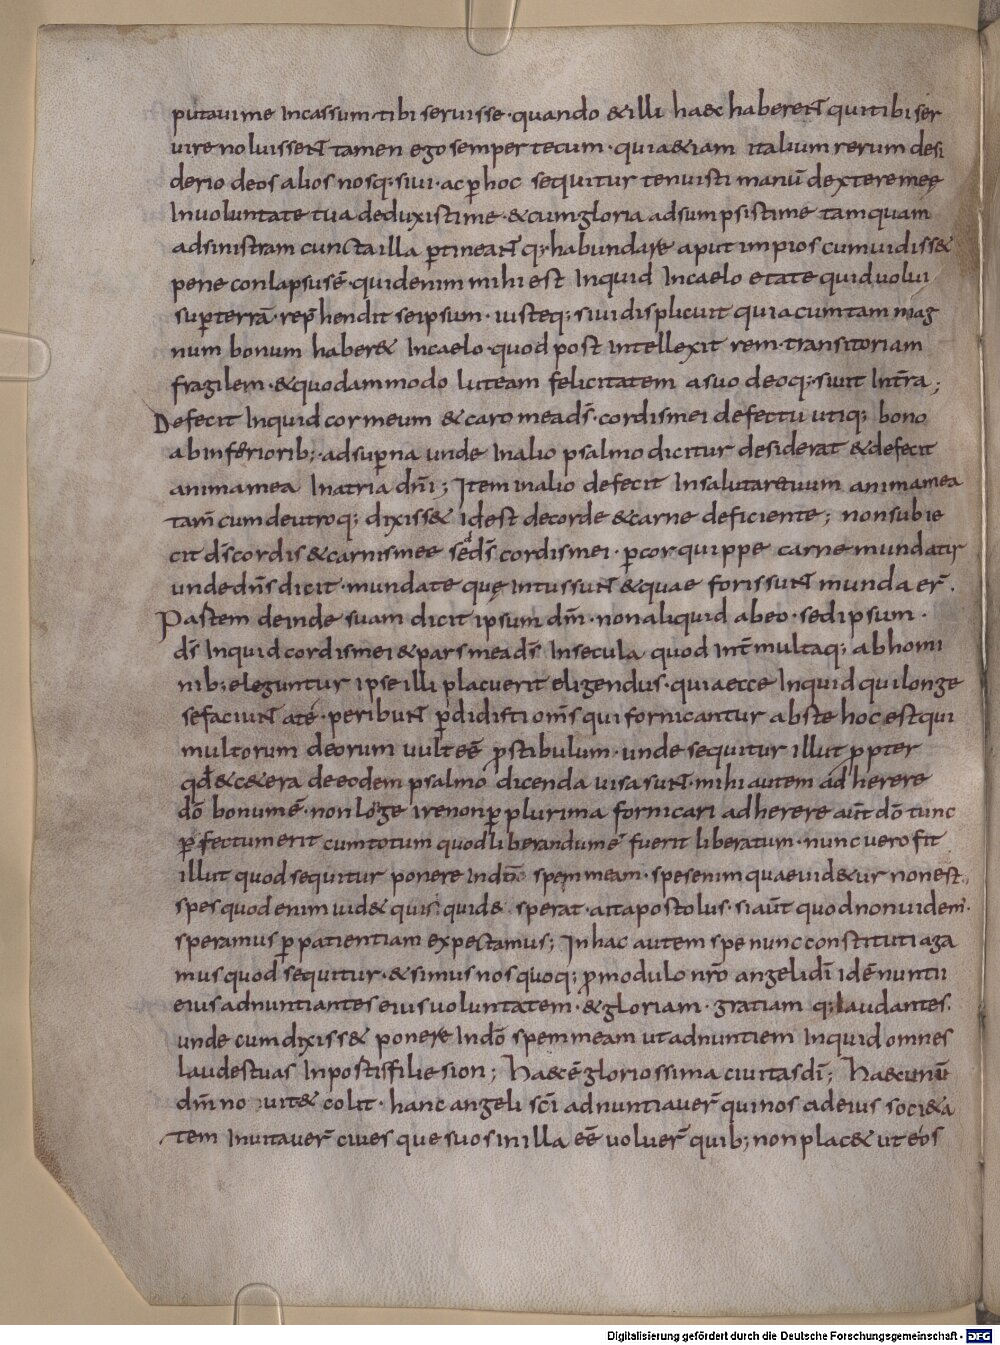 putaui me Incassum tibi seruisse · quando & illi haec haberent qui tibi ser
uire noluissent tamen ego semper tecum · quia &iam italium rerum desi
derio deos alios nosq; siui · ac p hoc sequitur tenuisti manū dexterę meę
In uoluntate tua deduxisti me · & cum gloria adsumpsisti me tamquam
ad sinistram cuncta illa ptineant q; habundare aput impios cum uidiss&
pene conlapsus ē · quid enim mihi est Inquid In caelo et a te quid uolui
sup terrā · rephendit se ipsum · iusteq; siui displicuit quia cum tam mag
num bonum haber& In caelo · quod post intellexit rem · transitoriam
fragilem · & quodammodo luteam felicitatem a suo deo q;siuit In tra ;
Defecit Inquid cor meum & caro mea ds̄ · cordis mei defectu utiq; bono
ab inferiorib; · ad supna unde In alio psalmo dicitur desiderat & defecit
anima mea In atria dn̄i ; Item in alio defecit In salutare tuum anima mea
tam̄ cum de utroq; dixiss& id est de corde & carne deficiente ; non subie
cit ds̄ cordis & carnis meę sed ds̄ cordis mei · p cor quippe carne mundatur
unde dn̄s dicit · mundate quę intus sunt & quae foris sunt munda er̄ ·
Partem deinde suam dicit ipsum dm̄ · non aliquid ab eo · sed ipsum ·
ds̄ Inquid cordis mei & pars mea ds̄ In secula quod int̄ multa q; ab homi
nib; eleguntur ipse illi placuerit eligendus · quia ecce Inquid qui longe
se faciunt a te · peribunt pdidisti om̄s qui fornicantur abs te hoc est qui
multorum deorum uult eē pstibulum · unde sequitur illut ppter
qd̄ & c&era de eodem psalmo dicenda uisa sunt · mihi autem adherere
dō bonum ē · non lōge ire non p plurima fornicari adherere aūt dō tunc
pfectum erit cum totum quod liberandum ē fuerit liberatum · nunc uero fit
illut quod sequitur ponere In dō spem meam · spes enim quae uid&ur non est
spes quod enim uid& quis quid & sperat · ait apostolus · si aūt quod non uidem̄ ·
speramus p patientiam expectamus ; In hac autem spe nunc constituti aga
mus quod sequitur · & simus nos quoq; pmodulo nr̄o angeli dī id ē nuntii
eius adnuntiantes eius uoluntatem · & gloriam · gratiam q; laudantes ·
unde cum dixiss& ponere In dō spem meam ut adnuntiem Inquid omnes
laudes tuas In portis filię sion ; Haec ē gloriosissima ciuitas dī ; Haec unū
dm̄ no uit & colit · hanc angeli sc̄i adnuntiauer̄ qui nos ad eius soci&a
tem Inuitauer̄ ciues que suos in illa eē uoluer̄ quib; non plac& ut eos
Digitalisierung gefördert durch die Deutsche Forschungsgemeinschaft - DFG